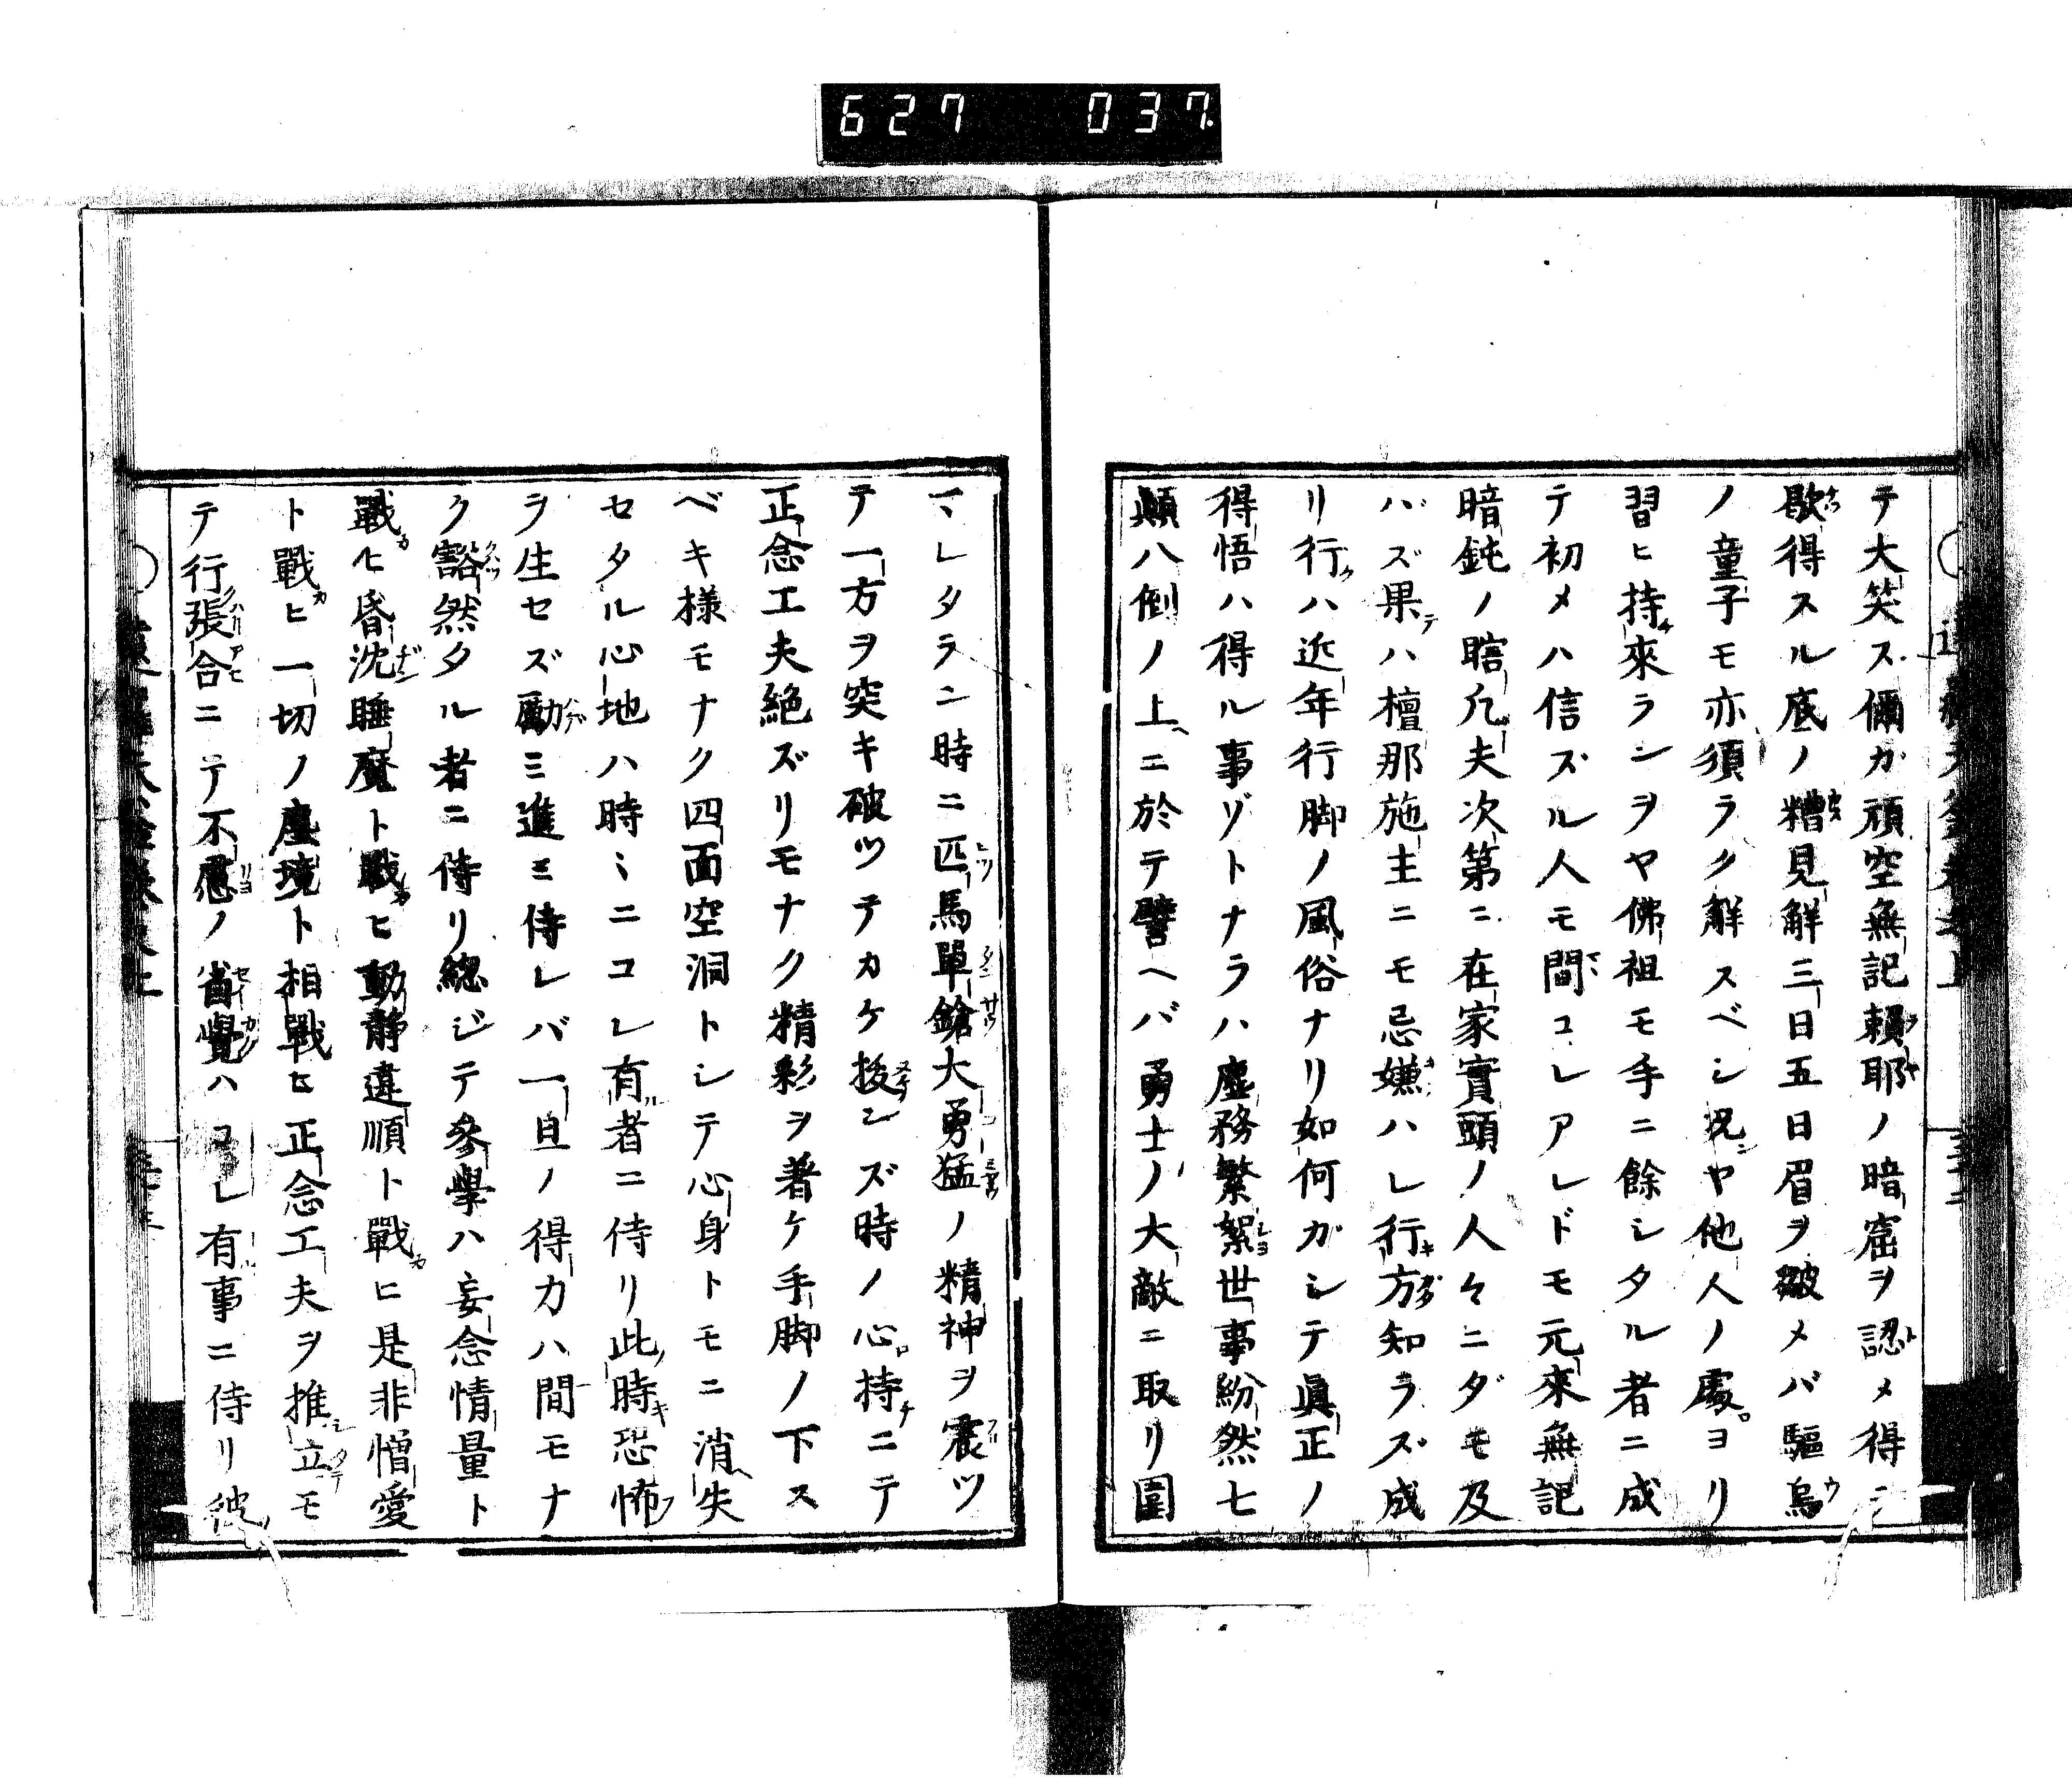 627 037
テ大笑ス儞ガ頑空無記賴耶ノ暗窟ヲ認メ得テ
歇得スル底ノ糟見解三日五日眉ヲ皺メバ驅烏
ノ童子モ亦須ラク解スベシ況ヤ他人ノ處ヨリ
習ヒ持來ランヲヤ佛祖モ手ニ餘シタル者ニ成
テ初メハ信ズル人モ間コレアレドモ元來無記
暗鈍ノ瞎凡夫次第ニ在家實頭ノ人々ニダモ及
バズ果ハ檀那施主ニモ忌嫌ハレ行方知ラズ成
リ行ハ近年行脚ノ風俗ナリ如何ガシテ眞正ノ
得悟ハ得ル事ゾトナラハ塵務繁絮世事紛然七
顚八倒ノ上ニ於テ譬ヘバ勇士ノ大敵ニ取リ圍
マレタランニ時ニ匹馬單鎗大勇猛ノ精神ヲ震ツ
テ一方ヲ突キ破ツテカケ拔ンズ時ノ心持ニテ
正念工夫絶ズリモナク精彩ヲ著ケ手脚ノ下ス
ベキ樣モナク四面空洞トシテ心身トモニ消失
セタル心地ハ時〻ニコレ有者ニ侍リ此時恐怖
ヲ生セズ勵ミ進ミ侍レバ一旦ノ得力ハ間モナ
ク豁然タル者ニ侍リ總ジテ參學ハ妄念情量ト
戰ヒ昏沈睡魔ト戰ヒ動靜違順ト戰ヒ是非憎愛
ト戰ヒ一切ノ塵境ト相戰ヒ正念工夫ヲ推立モ
テ行張合ニテ不慮ノ省覺ハコレ有事ニ侍リ彼